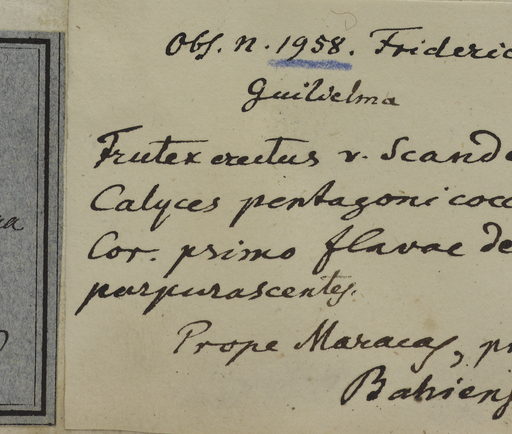 Obs. n. 1958. Frideric
Guilielma
Frutex erectus v. Scande
Calyces pentagoni cocc
Cor. primo flavae de
purpurascentes.
Prope Maracas, pr
Bahiens